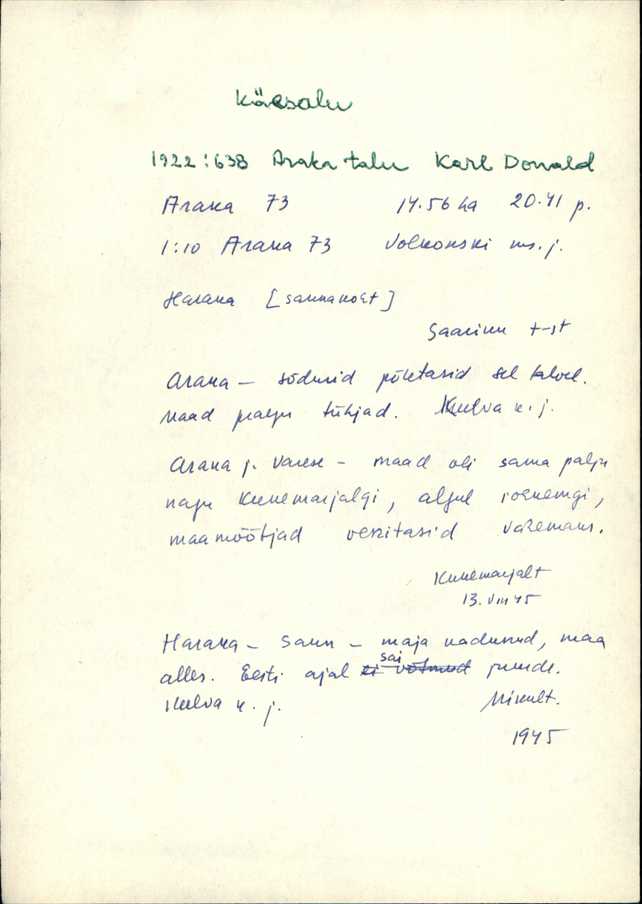 Käesalu
1922:638 Araka talu Karl Donald
Araka 73 14.56 ha 20.41 p.
1:10 Araka 73 Volkonski ms. j.
Haraka [saunakoht]
Saarinu t-st
Araka – sõdurid põletasid sel talvel.
maad palju tühjad. Kuulva k. j.
Araka j. Varese – maad oli sama palju
nagu Kunemarjalgi, algul rohkemgi,
maamõõtjad vesitasid vähemaks.
Kunemarjalt
13.VIII 45
Haraka – Saun – maja kadunud, maa
alles. Eesti ajal sai juurde.
Kuulva k. j. Mikult.
1945